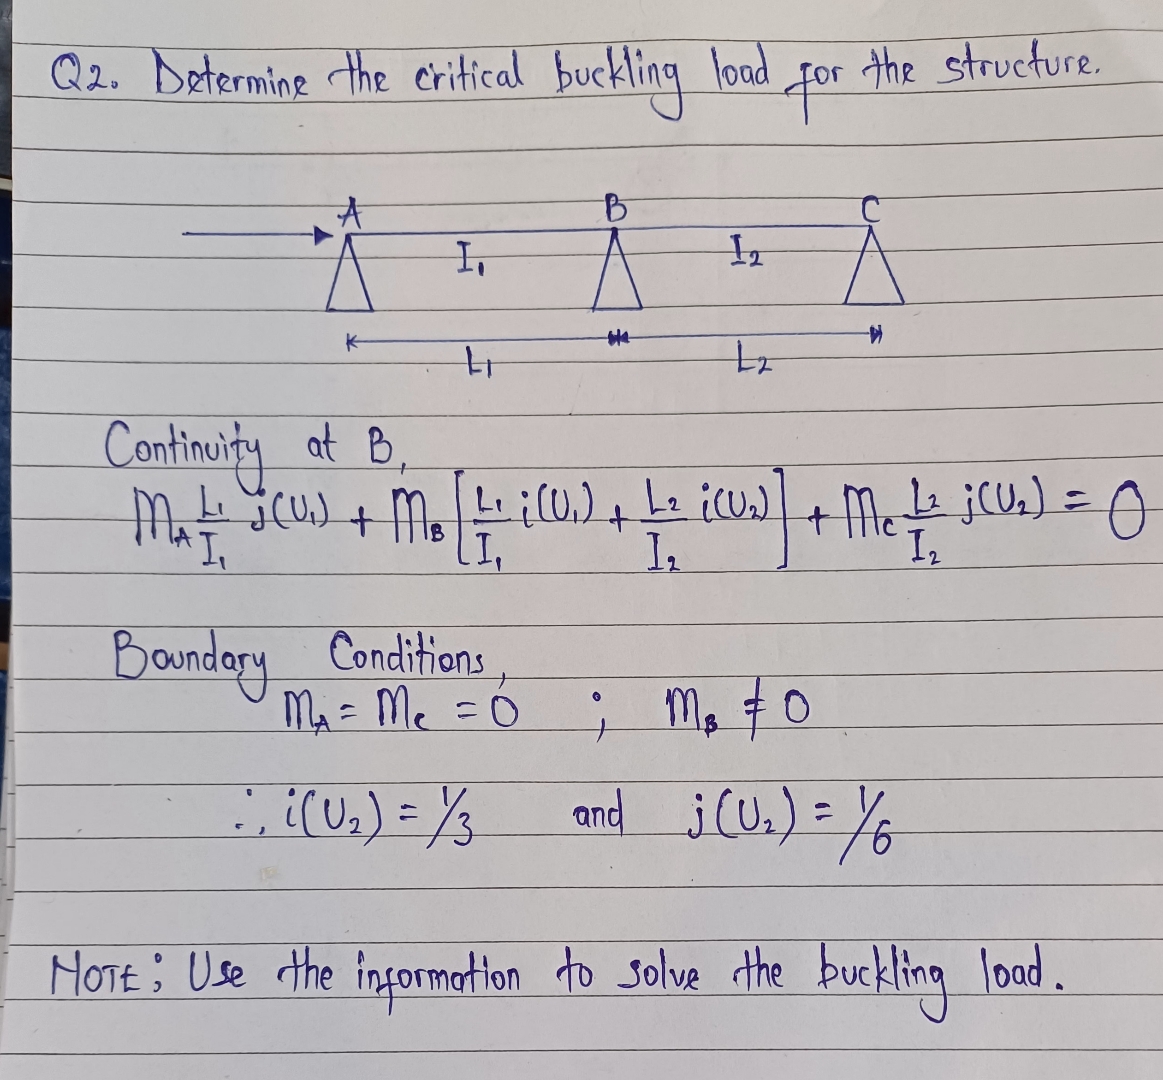 Q2. Determine the critical buckling load for the structure.
A B C
I₁ I₂
L₁ L₂
Continuity at B,
M_A L₁/I₁ j(U₁) + M_B [L₁/I₁ i(U₁) + L₂/I₂ i(U₂)] + M_C L₂/I₂ j(U₂) = 0
Boundary Conditions,
M_A = M_C = 0 ; M_B ≠ 0
∴, i(U₂) = 1/3 and j(U₂) = 1/6
NOTE; Use the information to solve the buckling load.